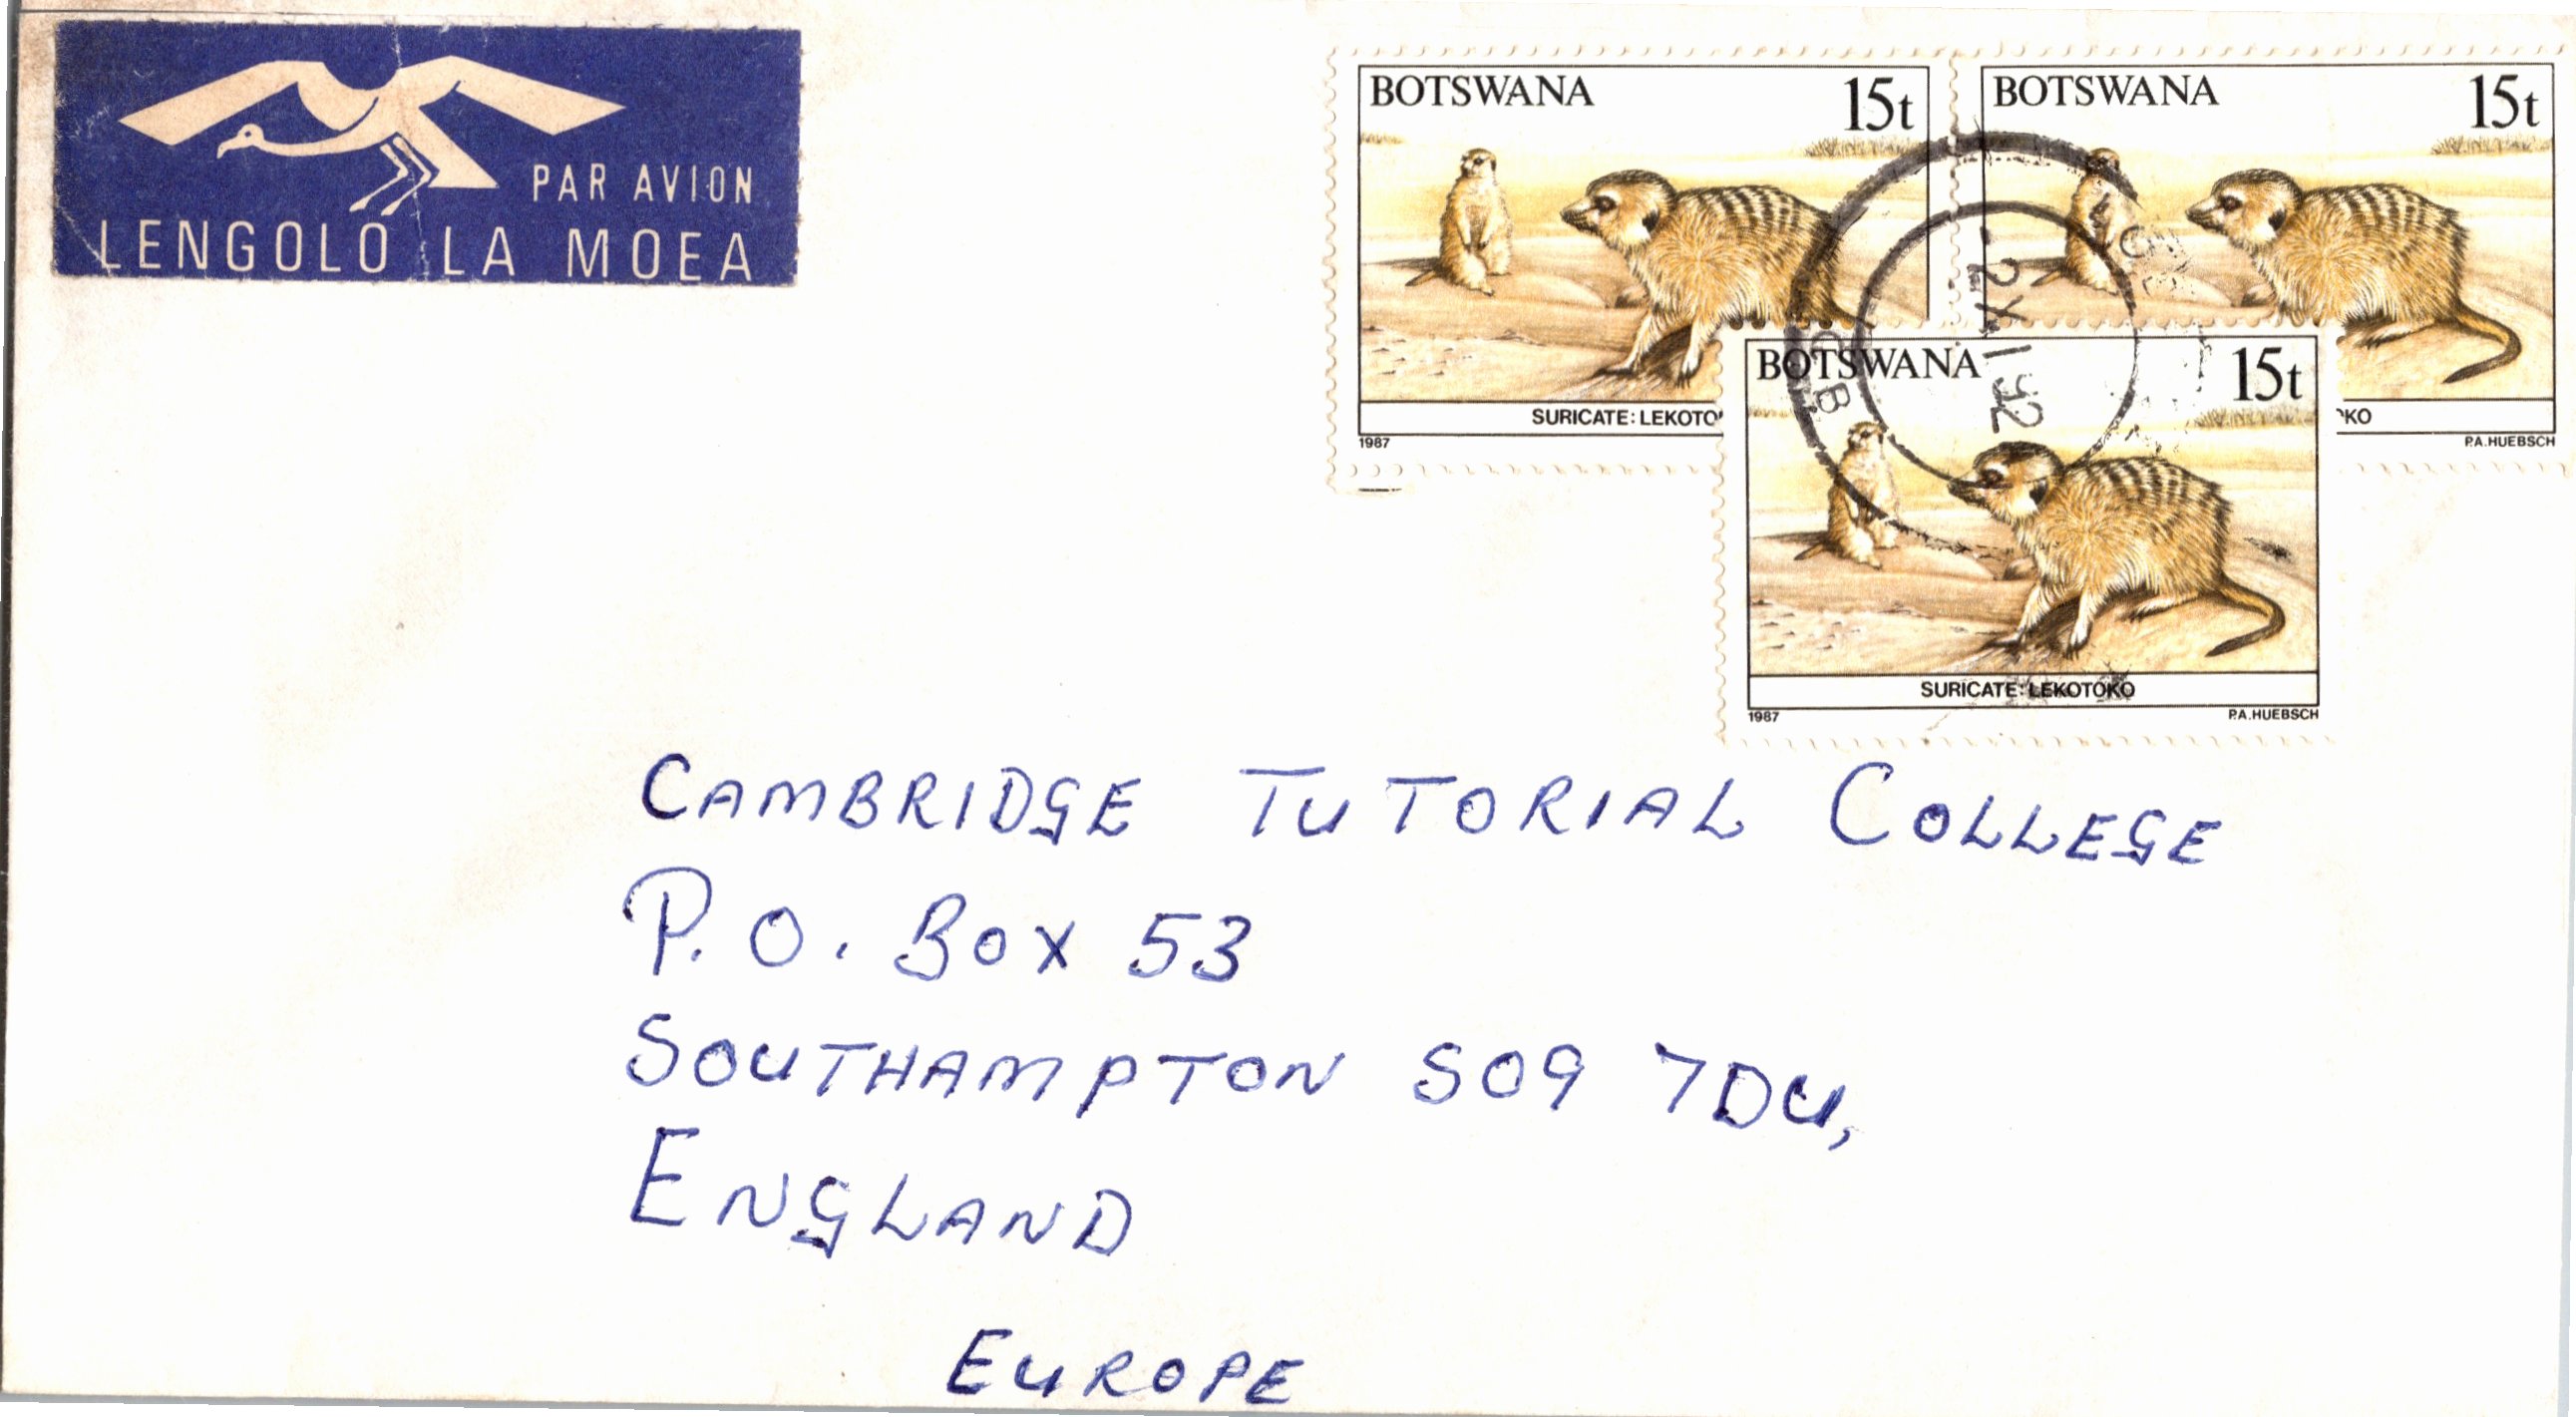 PAR AVION
LENGOLO LA MOEA
BOTSWANA 15t
SURICATE: LEKOTO
1987
BOTSWANA 15t
KO
P.A.HUEBSCH
BOTSWANA 15t
SURICATE: LEKOTOKO
1987 P.A.HUEBSCH
-2 XI 92
CAMBRIDGE TUTORIAL COLLEGE
P.O. BOX 53
SOUTHAMPTON SO9 7DU,
ENGLAND
EUROPE